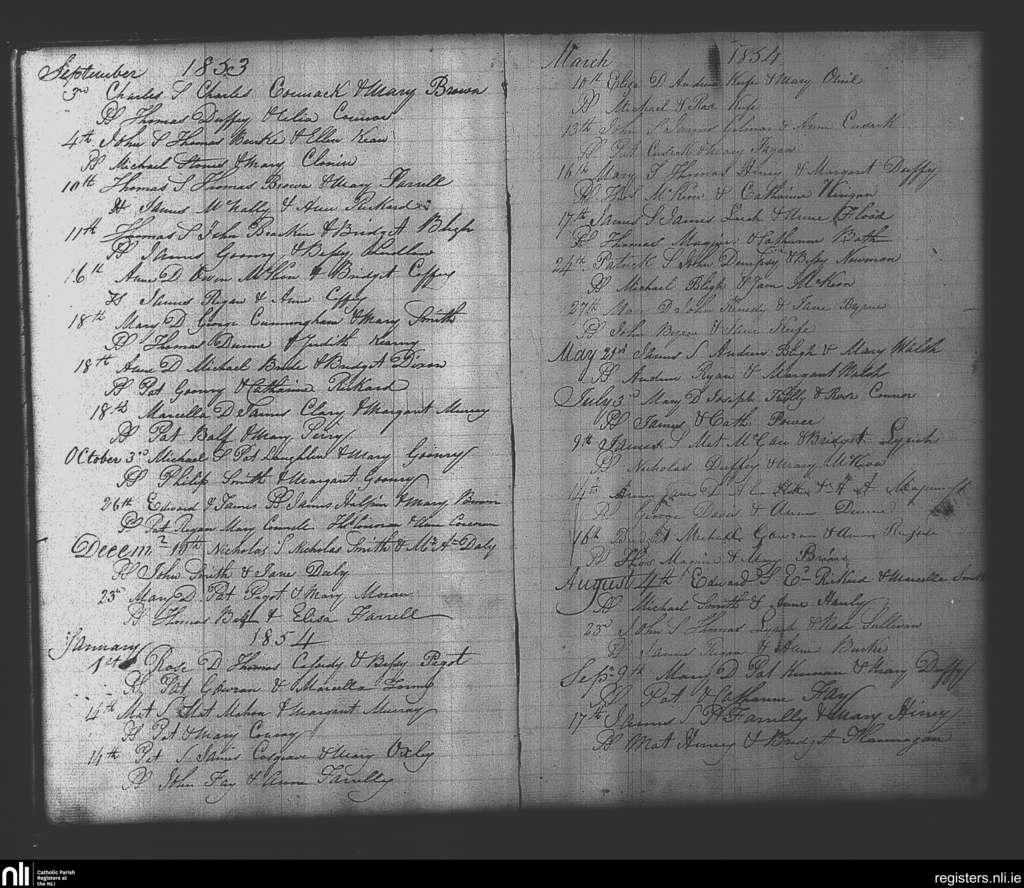 September 1853
3rd Charles S Charles Cormack & Mary Brown
Thomas Duffy & Celia Connor
4th John S Thomas Bourke & Ellen Kean
Michael & Mary
10th Thomas S Thomas Brown & Mary Farrell
James McNally & Ann Rickard
11th Thomas S John Bracken & Bridget Bligh
James Goonry & Bessy
16th Anne D Owen & Bridget Coffey
James Regan & Ann
18th Mary D George Cunningham & Mary Smith
Thomas Dunne & Judith Kearny
18th Anne D Michael & Bridget Dixon
Pat Goonry & Catharine Rickard
18th Marcella D James Clary & Margaret Murray
Pat Balf & Mary Perry
October 3rd Michael S Pat Laughlin & Mary Goonry
Philip Smith & Margaret Goonry
26th Edward & James James Halpin & Mary Brown
Pat Regan Mary Connell
Decemr 10th Nicholas S Nicholas Smith & Daly
John Smith & Jane Daly
23rd Mary D Pat Pigot & Mary Moran
Thomas Balf & Elisa Farrell
January 1854
1st Rose D Thomas & Bessy Pigot
Pat Gowran & Marcella
4th Mat S Mat Mahon & Margaret Murray
Pat & Mary
14th Pat S James Cosgrave & Mary Oxley
John Fay & Anne Farrelly
March 1854
10th Eliza D Andrew Keife & Mary
Michael & Rose Keife
13th John S James & Anne Cusack
Pat Cusack & Mary
16th Mary S Thomas Hiney & Margaret Duffy
McKeon & Catharine
17th James S James & Anne Flood
Thomas Maguire & Catharine Bath
24th Patrick S John Dempsy & Bessy Newman
Michael Bligh & Jane McKeon
27th Mary D John Kenedy & Jane Byrne
John Byrne & Jane Keife
May 21st James S Andrew Bligh & Mary Walsh
Andrew Ryan & Margaret Walsh
July 3rd Mary D Joseph Kelly & Rose Connor
James & Cath Power
9th James S Mat McCan & Bridget Lynch
Nicholas Duffy & Mary McKeon
14th
George & Dunne
16th Bridget Michael Gowran & Anne
Thos Maguire & Mary
August 4th Edward S Ed Rickard & Marcella Smith
Michael Smith & Jane Hanly
23rd John S Thomas Lynch & Kate Sullivan
James Kegan & Anne Burke
Sepr 9th Mary D Pat & Mary Duffy
Pat & Catharine Fay
17th James S P Farrelly & Mary Hiney
Mat Hiney & Bridget Flannagan
nli
Catholic Parish
Registers at
the NLI
registers.nli.ie